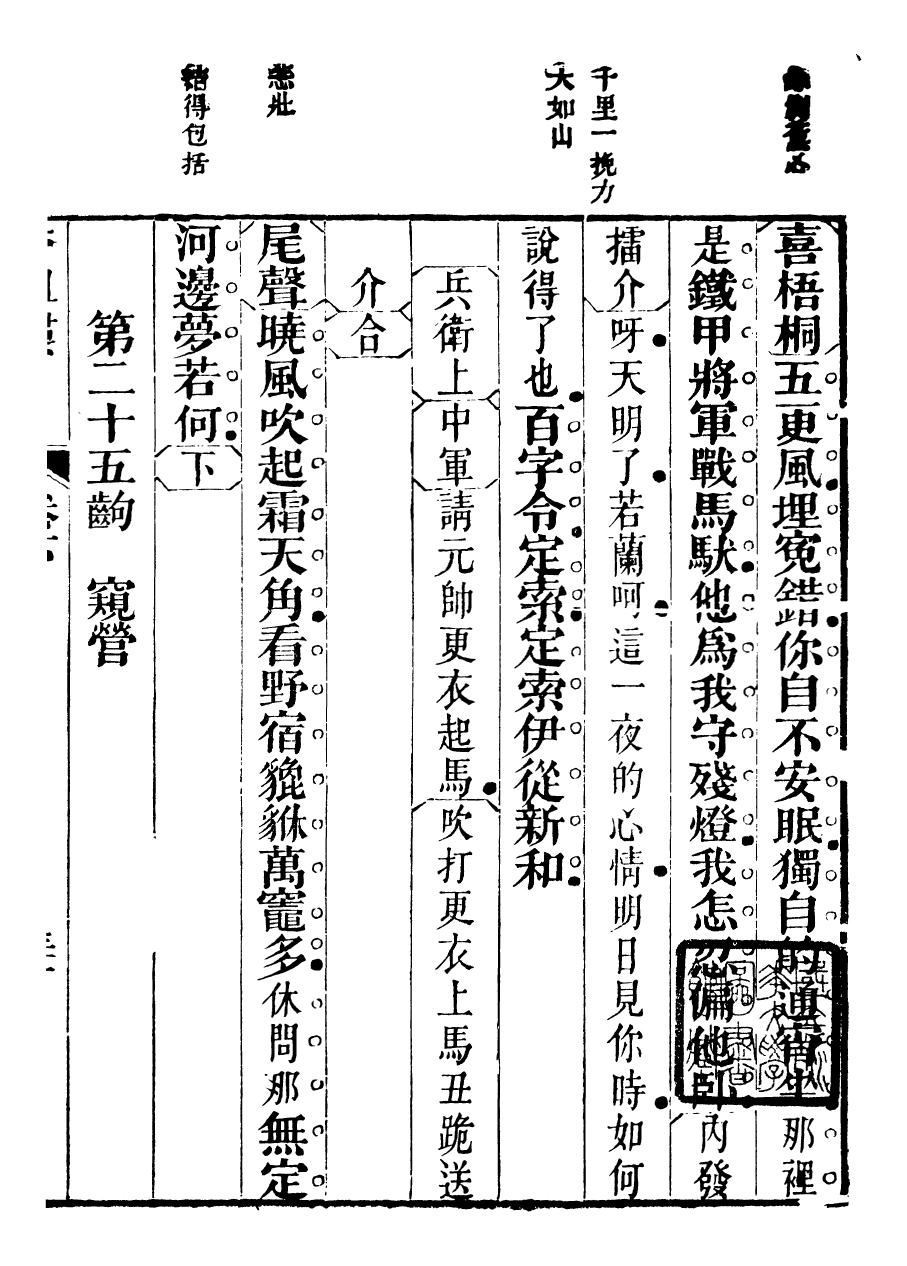 千里一挽力
大如山
悲壯
結得包括
喜梧桐五更風埋冤錯你自不安眠獨自的通宵坐那裡
是鐵甲將軍戰馬馱他爲我守殘燈我怎 偏他卧內發
擂介呀天明了若蘭呵這一夜的心情明日見你時如何
說得了也百字令定索定索伊從新和
兵衛上中軍請元帥更衣起馬吹打更衣上馬丑跪送
介合
尾聲曉風吹起霜天角看野宿貔貅萬竈多休問那無定
河邊夢若何下
第二十五齣 窺營